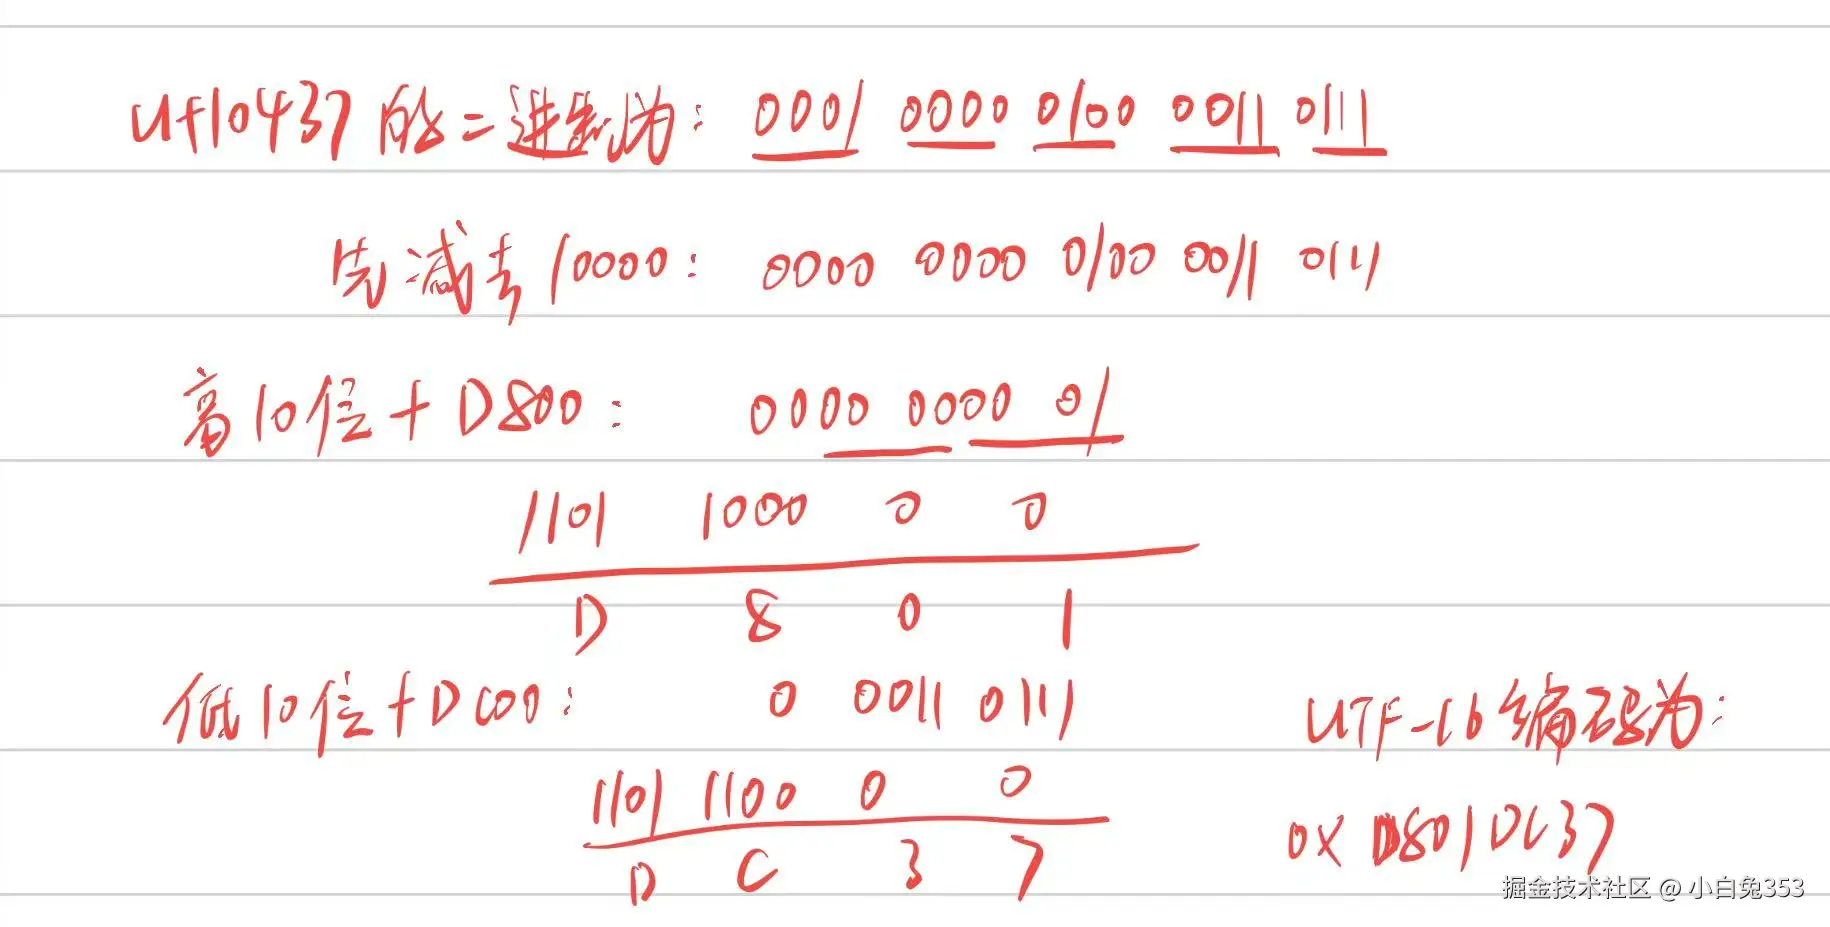 U+10437的二进制为: 0001 0000 0100 0011 0111
先减去10000: 0000 0000 0100 0011 0111
高10位+D800: 0000 0000 01
1101 1000 0 0
D 8 0 1
低10位+DC00: 0 0011 0111
1101 1100 0 0
D C 3 7
UTF-16编码为:
0x D801DC37
掘金技术社区 @ 小白兔353